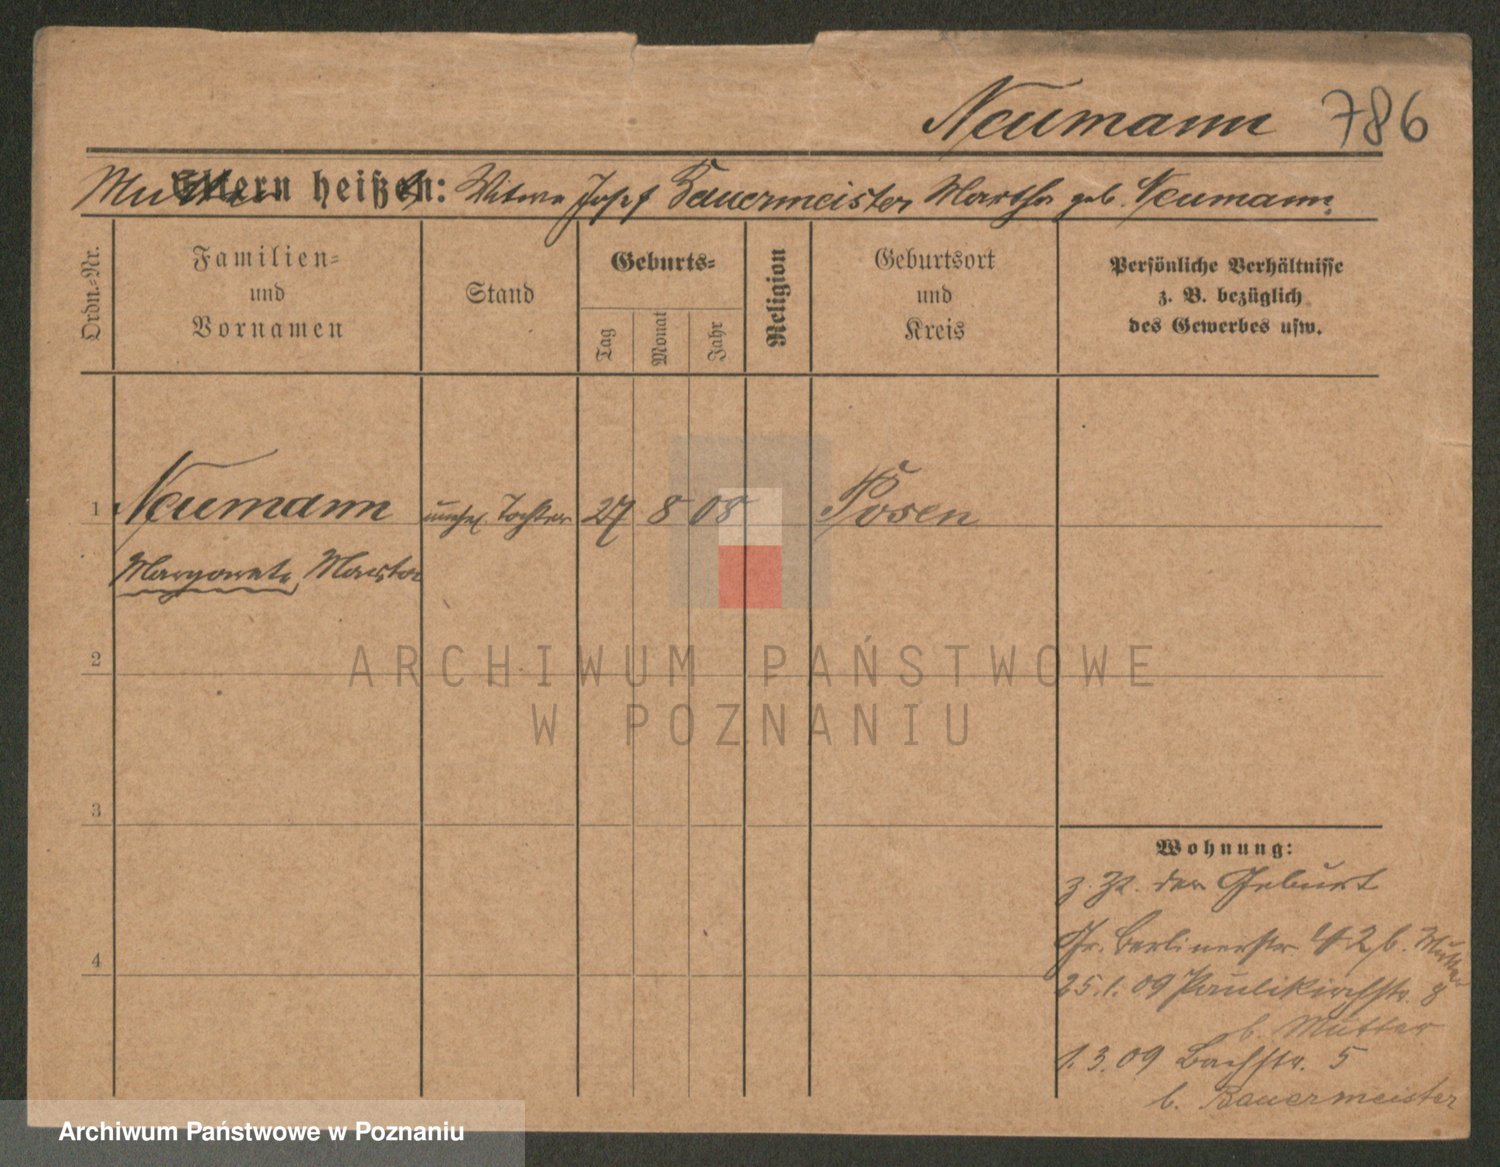 Neumann 786
Mutter heißt: Witwe Josef Bauermeister Martha geb. Neumann.
Ordn.-Nr.
Familien-
und
Vornamen
Stand
Geburts-
Tag
Monat
Jahr
Religion
Geburtsort
und
Kreis
Persönliche Verhältnisse
z. B. bezüglich
des Gewerbes usw.
1 Neumann unehel. Tochter 27 8 08 Posen
Margarete, Martha
2
3
4
Wohnung:
z. Zt. der Geburt
Gr. Berlinerstr. b. Mutter
25.1.09 Paulikirchstr. 8
b. Mutter
1.3.09 Bachstr. 5
b. Bauermeister
ARCHIWUM PAŃSTWOWE
W POZNANIU
Archiwum Państwowe w Poznaniu